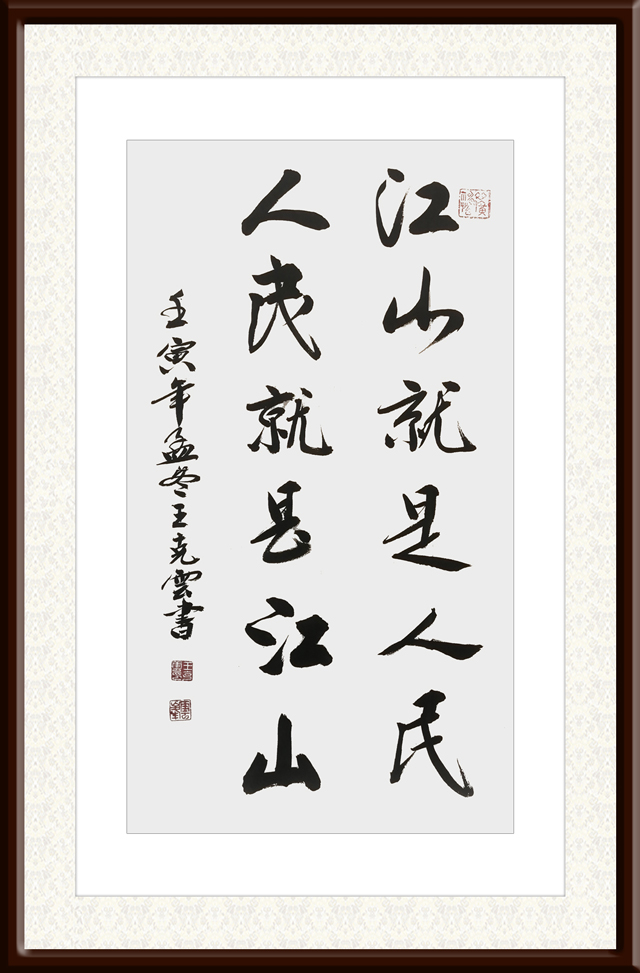 江山就是人民
人民就是江山
壬寅年孟冬王克雲書